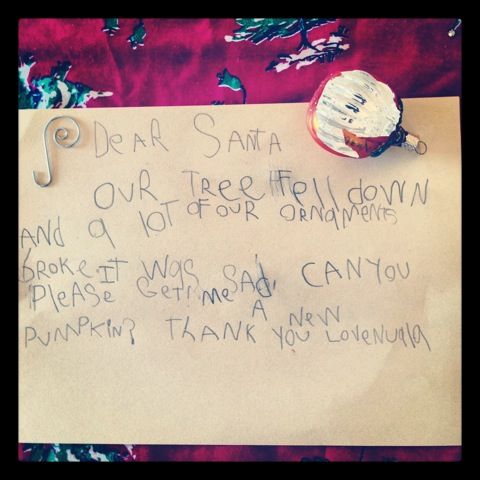 DEAR SANTA
OUR TREE Fell down
AND a lOT OF OUR ORNAMENTS
broke IT WAS SAd. CAN YOU
PleASe GeT me A New
PUMPKIN? THANK YOU LOVE NUala